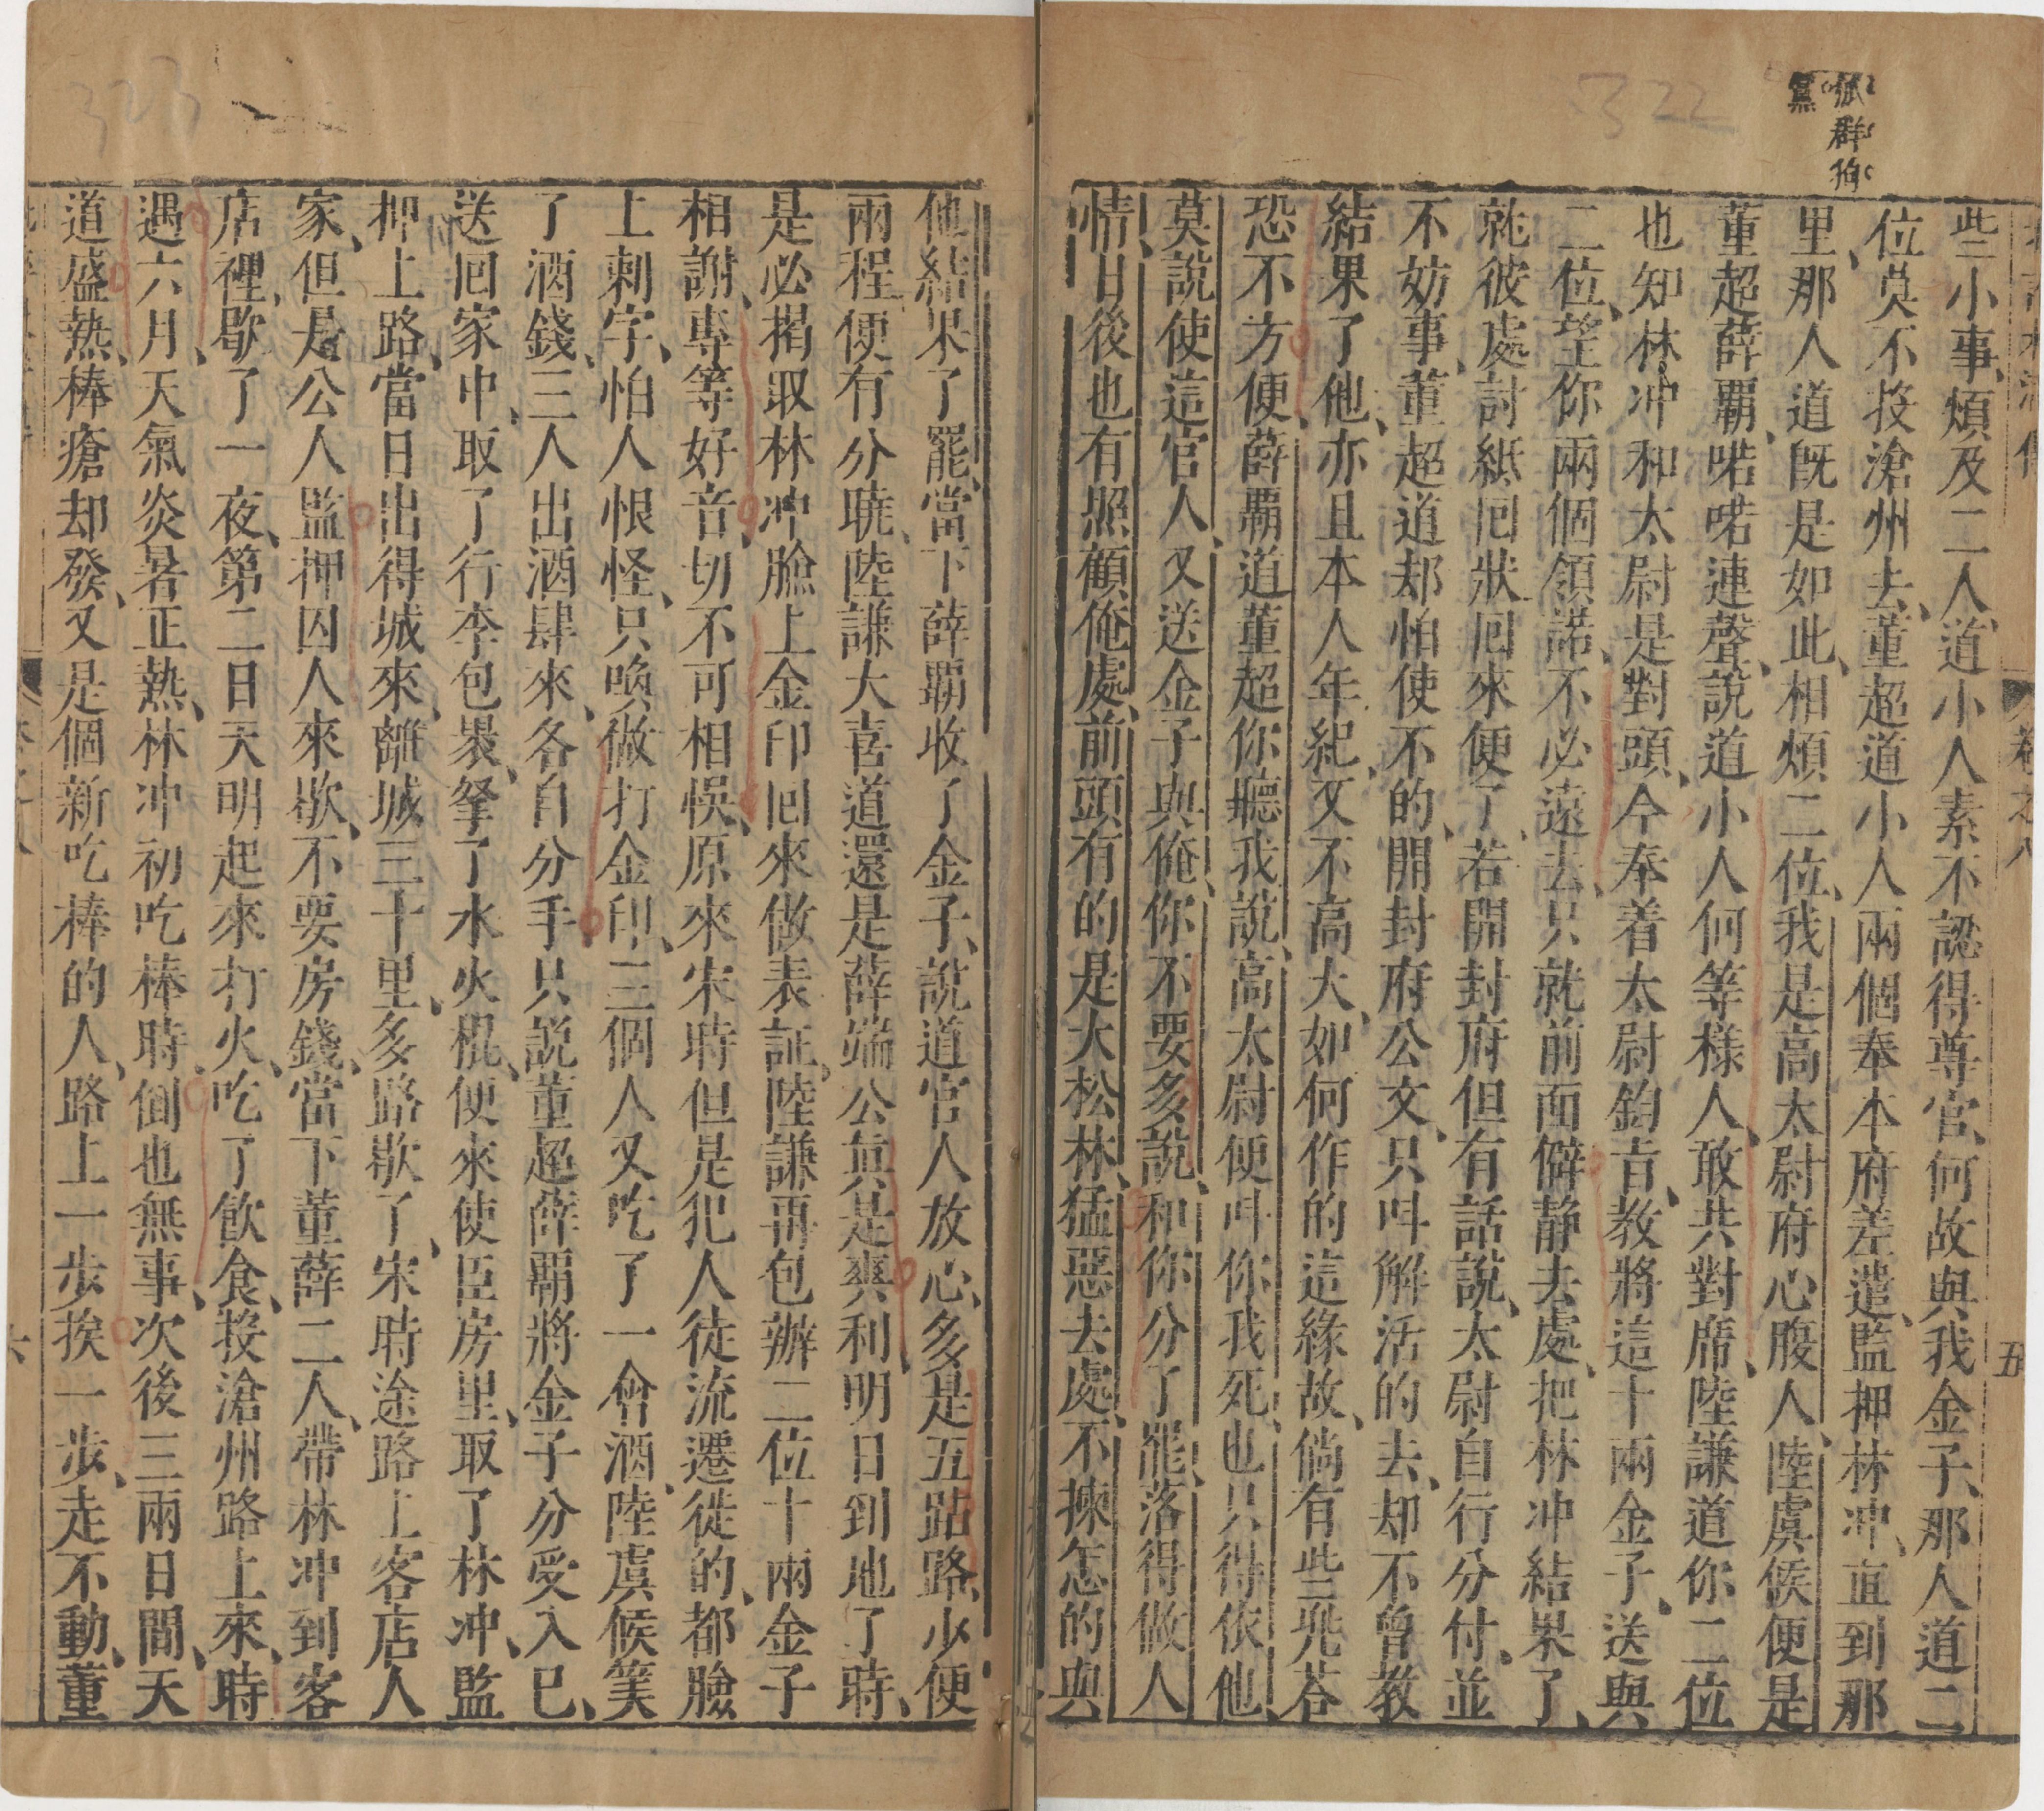 狐群狗
黨
322
些小事煩及二人道小人素不認得尊官何故與我金子那人道二
位莫不投滄州去董超道小人兩個奉本府差遣監押林冲直到那
里那人道既是如此相煩二位我是高太尉府心腹人陸虞候便是
董超薛霸喏喏連聲說道小人何等樣人敢共對席陸謙道你二位
也知林冲和太尉是對頭今奉着太尉鈞旨教將這十兩金子送與
二位望你兩個領諾不必遠去只就前面僻静去處把林冲結果了
就彼處討紙囘狀囘來便了若開封府但有話說太尉自行分付並
不妨事董超道却怕使不的開封府公文只呌解活的去却不曾教
結果了他亦且本人年紀又不高大如何作的這緣故倘有些兠荅
恐不方便薛霸道董超你聽我說高太尉便呌你我死也只得依他
莫說使這官人又送金子與俺你不要多說和你分了罷落得做人
情日後也有照顧俺處前頭有的是大松林猛惡去處不揀怎的與
五
323
他結果了罷當下薛霸收了金子說道官人放心多是五跕路少便
兩程便有分曉陸謙大喜道還是薛端公真是爽利明日到地了時
是必揭取林冲臉上金印囘來做表証陸謙再包辦二位十兩金子
相謝專等好音切不可相悞原來宋時但是犯人徒流遷徙的都臉
上刺字怕人恨怪只喚做打金印三個人又吃了一會酒陸虞候筭
了酒錢三人出酒肆來各自分手只說董超薛霸將金子分受入已
送囘家中取了行李包裹拏了水火棍便來使臣房里取了林冲監
押上路當日出得城來離城三十里多路歇了宋時途路上客店人
家但是公人監押囚人來歇不要房錢當下董薛二人帶林冲到客
店裡歇了一夜第二日天明起來打火吃了飲食投滄州路上來時
遇六月天氣炎暑正熱林冲初吃棒時倒也無事次後三兩日間天
道盛熱棒瘡却發又是個新吃棒的人路上一步挨一步走不動董
六